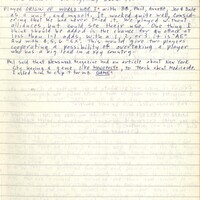 Played ORIGINS OF WORLD WAR II with BB, Phil, Annett, Jack Batts
as a unit, and myself. It worked quite well, consid-
ering that we had never tried it. We played without
alliances, but could see their use. One thing I
think should be added is the chance for an attack at
less than 1:1 odds, with a
and with 4, 5, 6 "EX". This would give two players
cooperating a possibility of overtaking a player
who had a big lead in a key country.
Phil said that Newsweek Magazine had an article about New York
City having a game, like MONOPOLY, to teach about Medicade
I asked him to clip it for with GAMES!